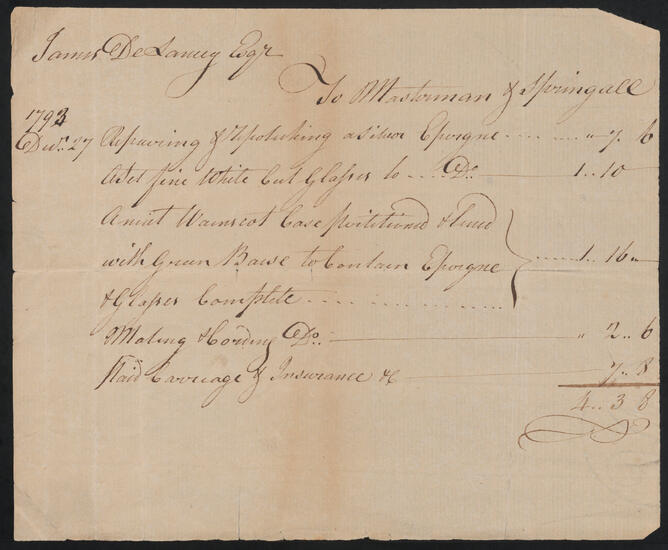 James DeLancey Esqr
To Masterman & Springall
1793
Decr. 27 Repairing & Upolishing a Silver Epergne ..... " 7. 6
A Set fine White Cut Glasses to ..... Do. 1 .. 10
A neat Wainscot Case partitioned & lined
with Green Baise to Contain Epergne ..... 1 .. 16 "
& Glasses Complete ..........
Mating & Cording Do. " 2 .. 6
Paid Carriage & Insurance &c 7 .. 8
4 .. 3 8